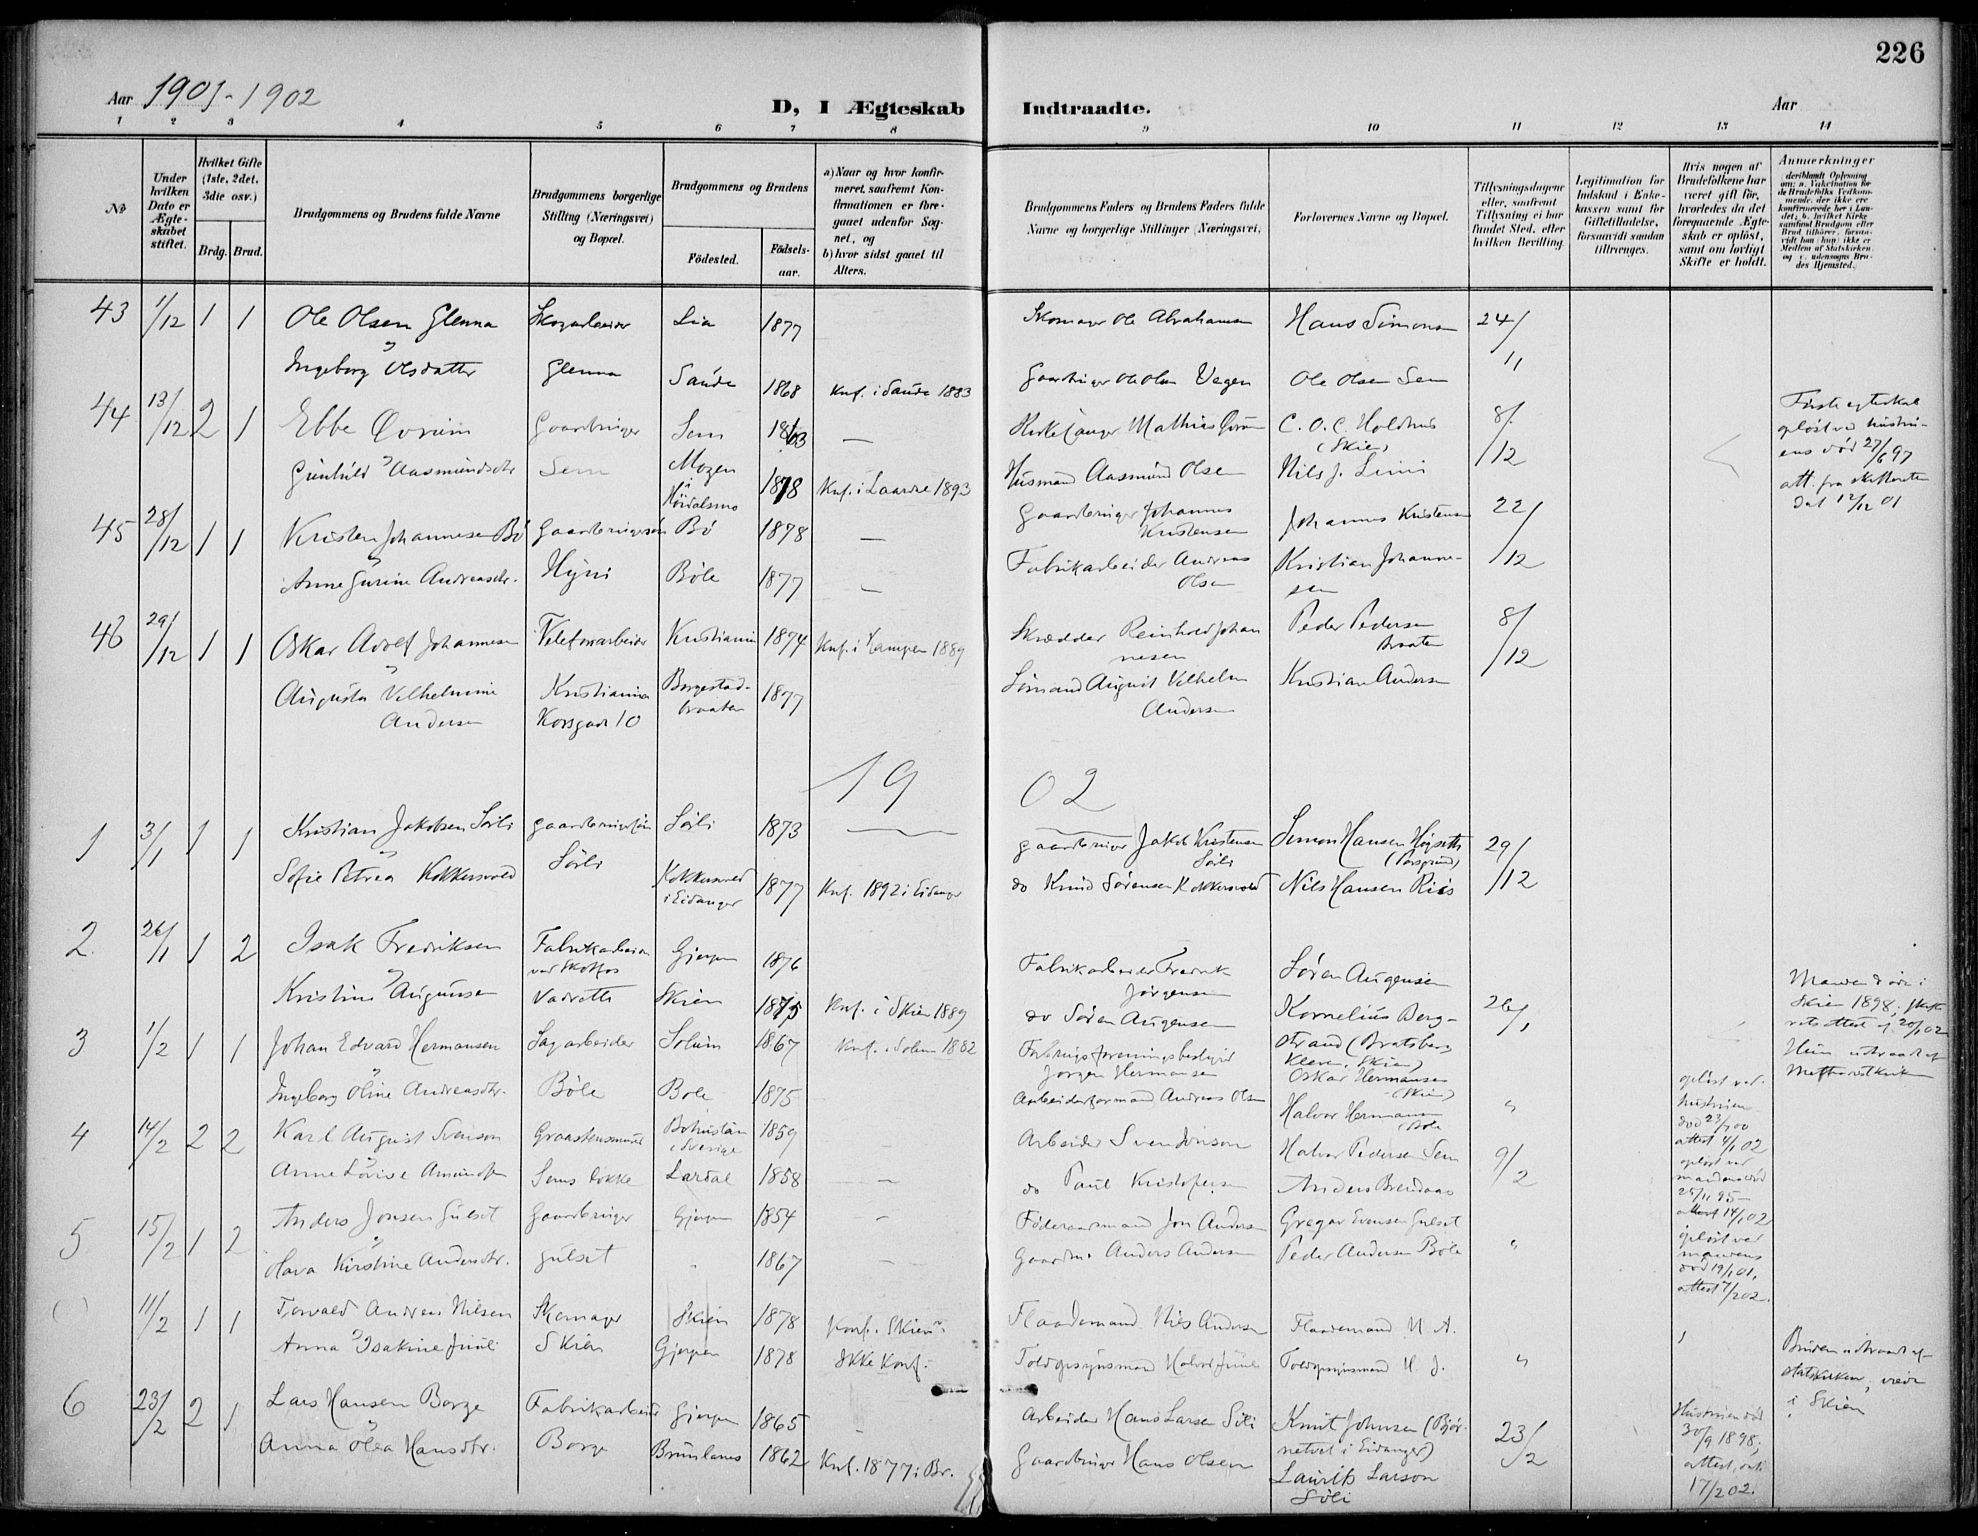 226
Aar 1901-1902
D, I Ægteskab Indtraadte.
Aar
1 2 3 4 5 6 7 8 9 10 11 12 13 14
№
Under hvilken Dato er Ægteskabet stiftet.
Hvilket Gifte (1ste, 2det, 3die osv.)
Brdg. Brud.
Brudgommens og Brudens fulde Navne
Brudgommens borgerlige Stilling (Næringsvei) og Bopæl.
Brudgommens og Brudens
Fødested.
Fødselsaar.
a) Naar og hvor konfirmeret, saafremt Konfirmationen er foregaaet udenfor Sognet, og
b) hvor sidst gaaet til Alters.
Brudgommens Faders og Brudens Faders fulde Navne og borgerlige Stillinger (Næringsvei.
Forlovernes Navne og Bopæl.
Tillysningsdagene eller, saafremt Tillysning ei har fundet Sted, efter hvilken Bevilling.
Legitimation for Indskud i Enkekassen samt for Giftetilladelse, forsaavidt saadan tiltrænges.
Hvis nogen af Brudefolkene har været gift før, hvorledes da det foregaaende Ægteskab er opløst, samt om lovligt Skifte er holdt.
Anmærkninger
43 1/12 1 1 Ole Olsen Glenna Skogarbeider Lia 1877 Skomager Ole Abrahamsen Hans Simonsen 24/11
Ingeborg Olsdatter Glenna Saude 1868 Knf. i Saude 1883 Gaardbruger Ole Olsen Vegen Ole Olsen Sem
44 13/12 2 1 Ebbe Gaardbruger Sem 1863 — Kirkesanger Mathias C. O. C. Holdhus (Skien) 8/12
Første egteskab opløst ved hustruens død 27/6 97 att. fra skifteretten dat 12/12 01
Gunhild Aasmundsdtr Sem Mogen i Høidalsmo 1878 Knf. i Laardal 1893 Husmand Aasmund Olsen Nils J. Limi
45 28/12 1 1 Kristen Johannesen Bö Gaardbrugersøn Bö 1878 — Gaardbruger Johannes Kristensen Johannes Kristensen 22/12
Anne Gurine Andreasdtr. Hyni Böle 1877 — Fabrikarbeider Andreas Olsen Kristian Johannesen
46 29/12 1 1 Oskar Adolf Johannesen Telefonarbeider Kristiania 1874 Knf. i Kampen 1889 Skrædder Reinhold Johannesen Peder Pedersen Braaten 8/12
Augusta Vilhelmine Andersen Kristiania Korsgade 10 Borgestadbraaten 1877 Sømand August Vilhelm Andersen Kristian Andersen
1902
1 3/1 1 1 Kristian Jakobsen Sörli gaardbrugersøn Sörli 1873 — gaardbruger Jakob Kristensen Sörli Simon Hansen Högseth (Porsgrund) 29/12
Sofie Petrea Kokkersvold Sörli Kokkersvold i Eidanger 1877 Knf. 1892 i Eidanger do Knud Sørensen Kokkersvold Nils Hansen Riis
2 26/1 1 2 Isak Fredriksen Fabrikarbeider ved Skotfos Gjerpen 1876 Fabrikarbeider Fredrik Jörgensen Søren Augensen 26/1
Manden döde i Skien 1898, skifteretsattest af 20/1 02
Kristine Augensen Vadrette Skien 1875 Knf. i Skien 1889 do Søren Augensen Kornelius Bergstrand (Bratsberg Kleven, Skien)
3 1/2 1 1 Johan Edvard Hermansen Sagarbeider Solum 1867 Knf. i Solum 1882 Forbrugsforeningsbestyrer Jørgen Hermansen Oskar Hermansen (Skien)
Hun udtraadt af
Ingeborg Oline Andreasdtr. Böle Bole 1875 Arbeiderformand Andreas Olsen Halvor Hermansen Bole "
4 14/2 2 2 Karl August Svenson Graastensmurer Bohuslän i Sverige 1859 Arbeider Sven Jonson Halvor Pedersen Sem 9/2
opløst ved hustruens død 23/1 00 attest 4/1 02
Anne Lovise Amundsen Sems lökke Lardal 1858 — do Paul Kristofersen Anders Brendaas
opløst ved mandens død 25/11 95 — attest 14/1 02
5 15/2 1 2 Anders Jonsen Gulset Gaardbruger Gjerpen 1854 — Föderaadsmand Jon Andersen Gregar Evensen Gulset
Hava Kirstine Andersdtr. Gulset " 1867 — Gaardbr. Anders Andersen Peder Andersen Böle "
opløst ved mandens død 19/1 01, attest 17/2 02.
11/2 1 1 Torvald Andreas Nilsen Skomager Skien 1878 Konf. Skien Flaademand Nils Andersen Flaademand N. A.
Anna Isakine Juul Skien Gjerpen 1878 Ikke Konf. Toldopsynsmand Halvor Juul Toldopsynsmand H. J. "
Bruden udtraadt af statskirken, viede i Skien
6 23/2 2 1 Lars Hansen Borge Fabrikarbeider Gjerpen 1865 — Arbeider Hans Larsen Söli Knut Johnsen (Bjørnetvet i Eidanger) 23/2
Hustruen död 30/9 1898, attest 17/2 02.
Anna Olea Hansdtr. Borge Brunlanes 1862 Knf. 1877 i Br. Gaardbruger Hans Olsen Laurits Larson Söli